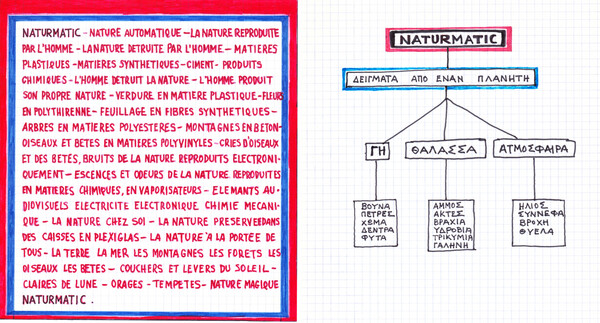 NATURMATIC – NATURE AUTOMATIQUE – LA NATURE REPRODUITE
PAR L'HOMME – LA NATURE DETRUITE PAR L'HOMME – MATIERES
PLASTIQUES – MATIERES SYNTHETIQUES – CIMENT – PRODUITS
CHIMIQUES – L'HOMME DETRUIT LA NATURE – L'HOMME PRODUIT
SON PROPRE NATURE – VERDURE EN MATIERE PLASTIQUE – FLEURS
EN POLYTHIRENNE – FEUILLAGE EN FIBRES SYNTHETIQUES –
ARBRES EN MATIERES POLYESTERES – MONTAGNES EN BETON –
OISEAUX ET BETES EN MATIERES POLYVINYLES – CRIES D'OISEAUX
ET DES BETES, BRUITS DE LA NATURE REPRODUITS ELECTRONI-
QUEMENT – ESCENCES ET ODEURS DE LA NATURE REPRODUITES
EN MATIERES CHIMIQUES, EN VAPORISATEURS – ELEMANTS AU-
DIOVISUELS ELECTRICITE ELECTRONIQUE CHIMIE MECANI-
QUE – LA NATURE CHEZ SOI – LA NATURE PRESERVEE DANS
DES CAISSES EN PLEXIGLAS – LA NATURE A LA PORTEE DE
TOUS – LA TERRE LA MER LES MONTAGNES LES FORETS LES
OISEAUX LES BETES – COUCHERS ET LEVERS DU SOLEIL –
CLAIRES DE LUNE – ORAGES – TEMPETES – NATURE MAGIQUE
NATURMATIC .
NATURMATIC
ΔΕΙΓΜΑΤΑ ΑΠΟ ΕΝΑΝ ΠΛΑΝΗΤΗ
ΓΗ
ΘΑΛΑΣΣΑ
ΑΤΜΟΣΦΑΙΡΑ
ΒΟΥΝΑ
ΠΕΤΡΕΣ
ΧΩΜΑ
ΔΕΝΤΡΑ
ΦΥΤΑ
ΑΜΜΟΣ
ΑΚΤΕΣ
ΒΡΑΧΙΑ
ΥΔΡΟΒΙΑ
ΤΡΙΚΥΜΙΑ
ΓΑΛΗΝΗ
ΗΛΙΟΣ
ΣΥΝΝΕΦΑ
ΒΡΟΧΗ
ΘΥΕΛΑ